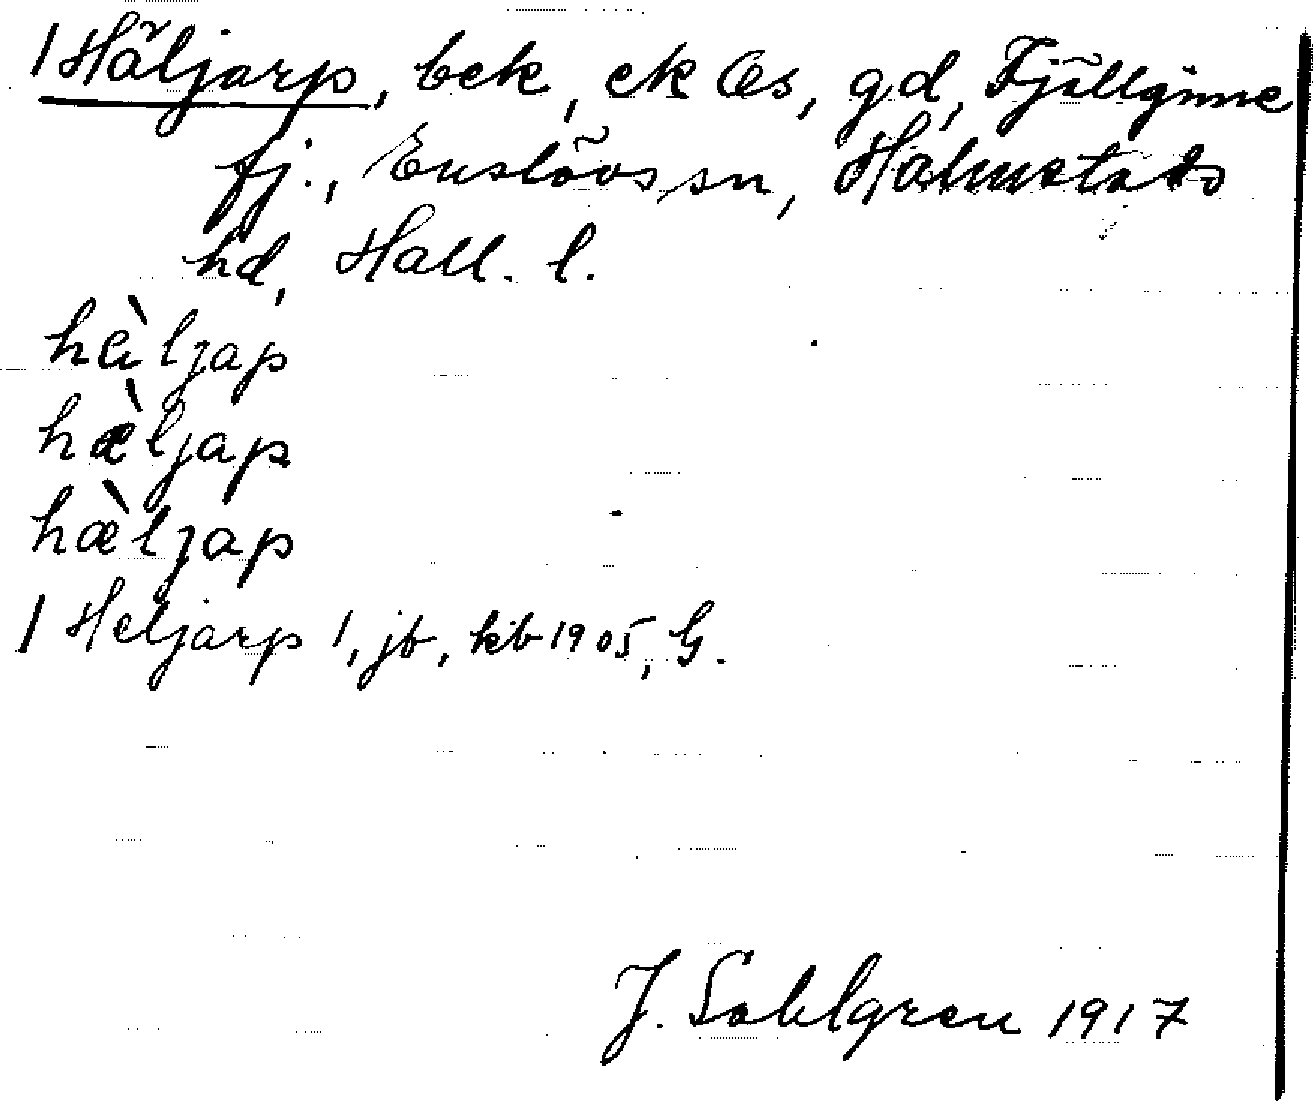 / Häljarp, bek, ek Os, gd, Fjällginne
fj., Enslövs sn, Halmstads
hd, Hall. l.
hæ̀ljap
hæ̀ljap
hæ̀ljap
/ Heljarp 1, jb, kb 1905, G.
J. Sahlgren 1917